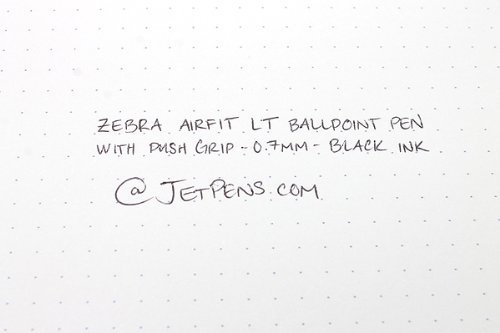 ZEBRA AIRFIT LT BALLPOINT PEN
WITH PUSH GRIP - 0.7MM - BLACK INK
@ JETPENS.COM